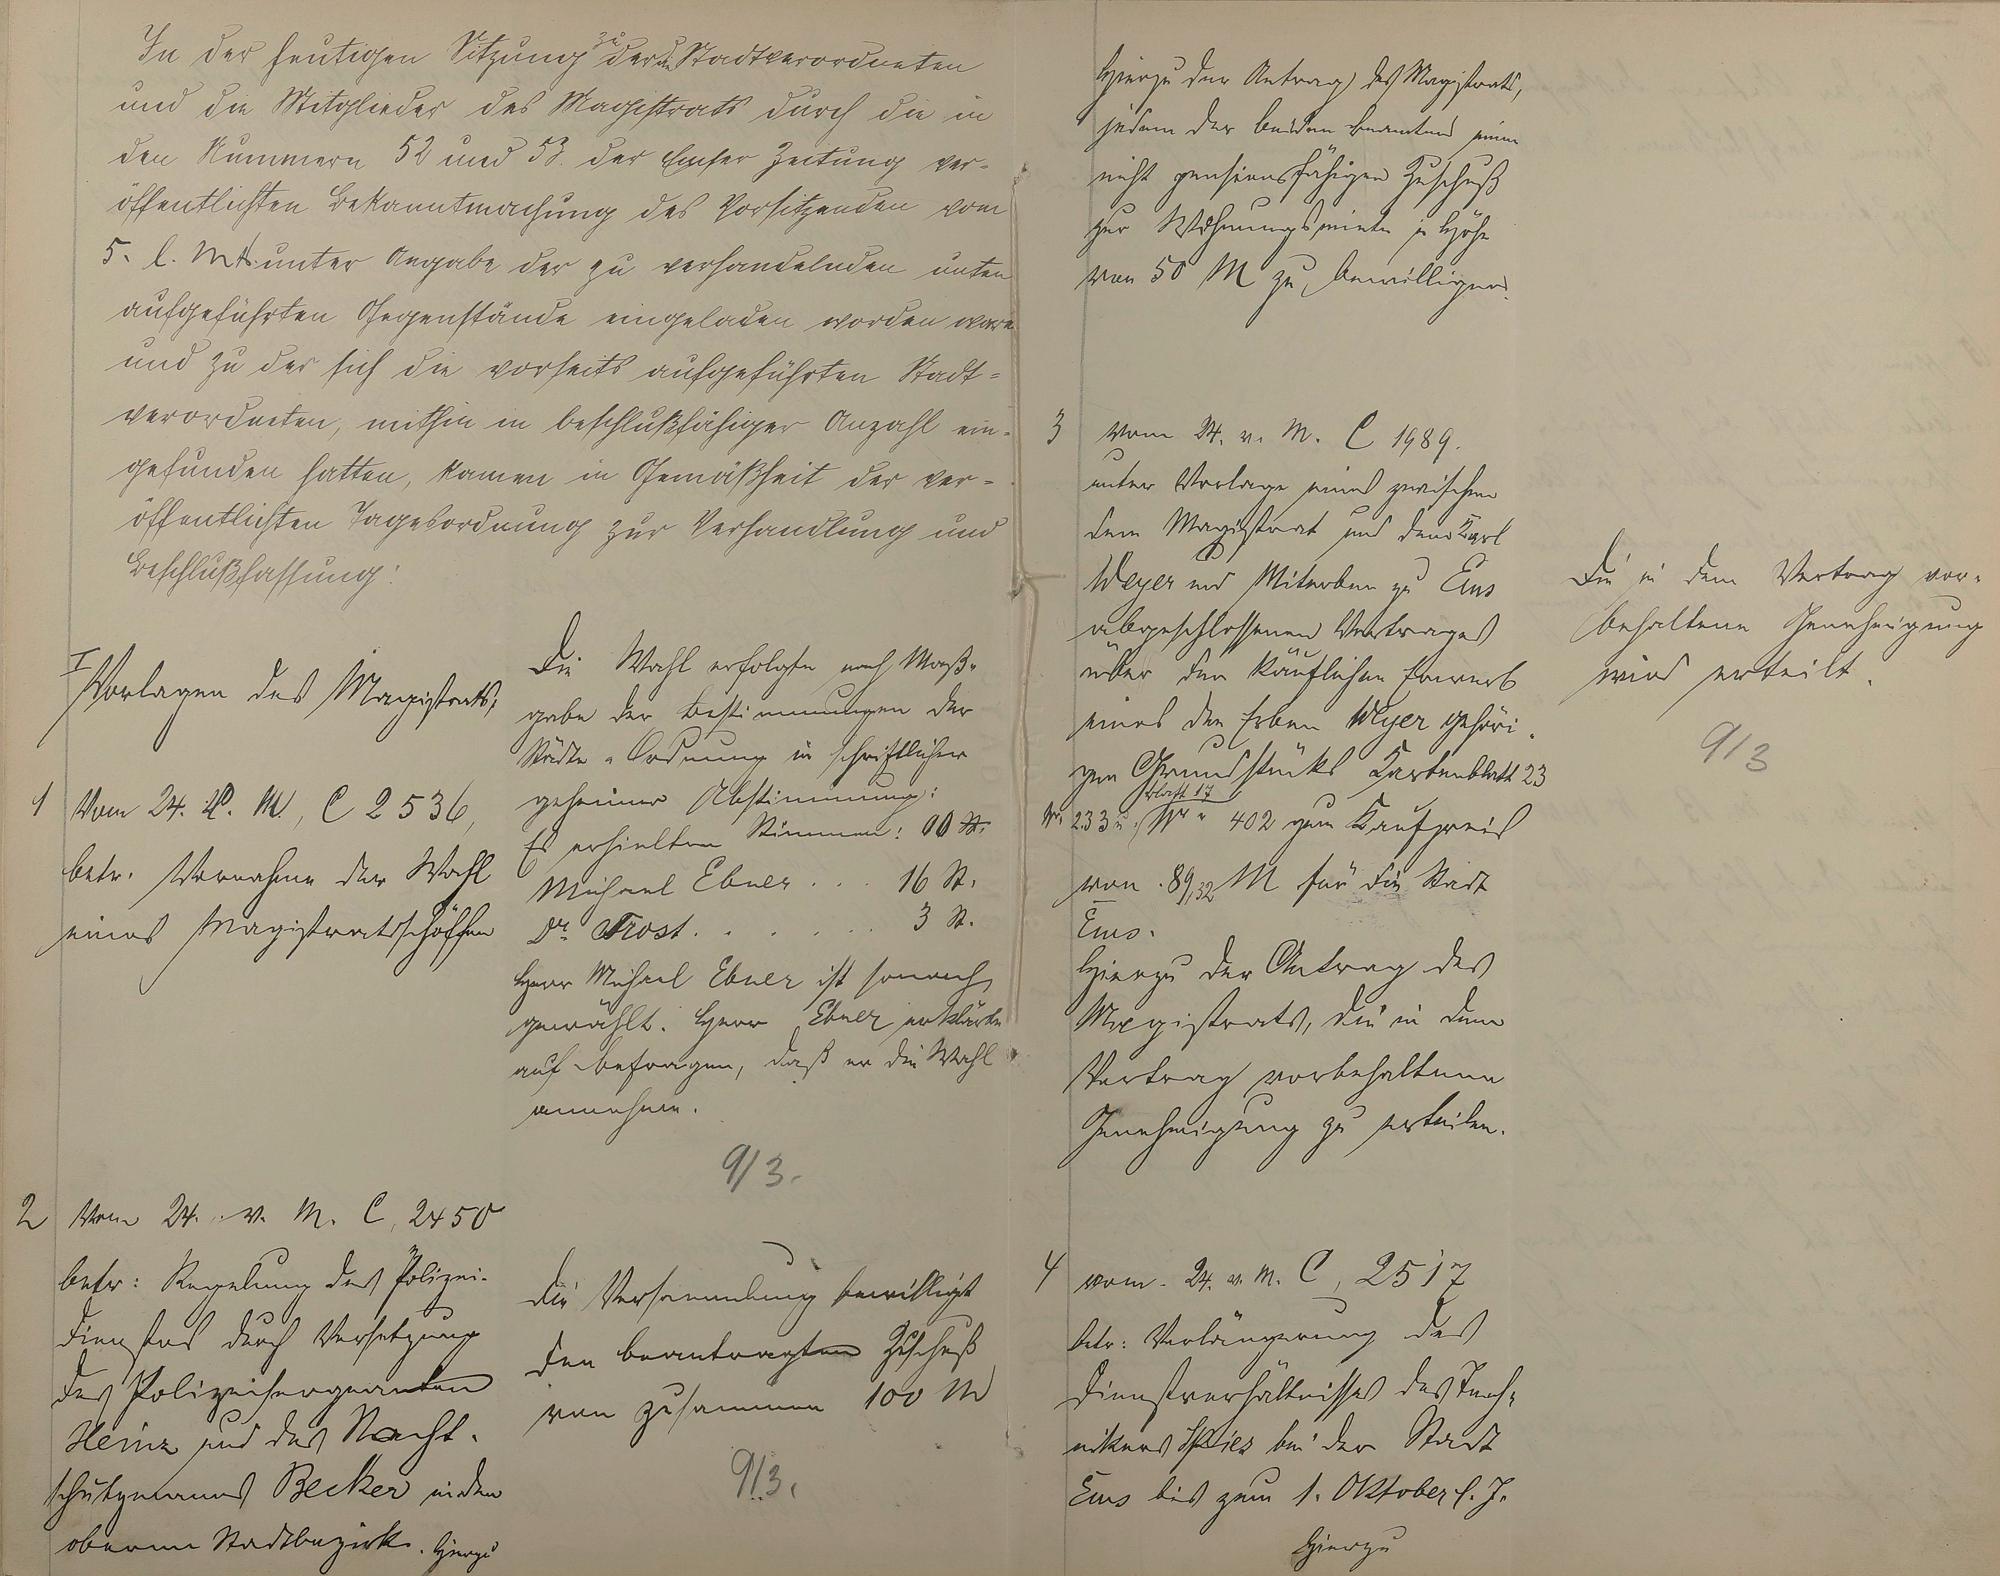 In der heutigen Sitzung zu der die Stadtverordneten
und die Mitglieder des Magistrats durch die in
den Nummern 52 und 53. der Emser Zeitung ver-
öffentlichten Bekanntmachung des Vorsitzenden vom
5. l. Mts. unter Angabe der zu verhandelnden unten
aufgeführten Gegenstände eingeladen worden waren
und zu der sich die vorseits aufgeführten Stadt-
verordneten, mithin in beschlußfähiger Anzahl ein-
gefunden hatten, kamen in Gemäßheit der ver-
öffentlichten Tagesordnung zur Verhandlung und
Beschlußfassung:
I Vorlagen des Magistrats,
1 Vom 24. v. M., C 2536,
betr. Vornahme der Wahl
eines Magistratsschöffen
Die Wahl erfolgte nach Maß-
gabe der Bestimmungen der
Städte-Ordnung in schriftlicher
geheimer Abstimmung:
Es erhielten Stimmen:
Michael Ebner . . . 16 St.
Dr. Trost . . . . . . 3 St.
Herr Michael Ebner ist sonach
gewählt. Herr Ebner erklärte
auf Befragen, daß er die Wahl
annehme.
9/3.
2 Vom 24. v. M. C. 2450
betr: Regelung des Polizei-
dienstes durch Versetzung
des Polizeisergeanten
Heinz und des Nacht-
schutzmanns Becker in den
oberen Stadtbezirk. Hierzu
Die Versammlung bewilligt
den beantragten Zuschuß
von zusammen 100 M
9/3.
Hierzu der Antrag des Magistrats,
jedem der beiden Beamten einen
nicht pensionsfähigen Zuschuß
zur Wohnungsmiete in Höhe
von 50 M zu bewilligen.
3 vom 24. v. M. C 1989.
unter Vorlage eines zwischen
dem Magistrat und dem Karl
Weyer und Miterben zu Ems
abgeschlossenen Vertrages
über den käuflichen Erwerb
eines den Erben Weyer gehöri-
gen Grundstücks Kartenblatt 23
Blatt 17
Nr. 233 u. Nr. 402 zum Kaufpreis
von 89,32 M für die Stadt
Ems.
Hierzu der Antrag des
Magistrats, die in dem
Vertrag vorbehaltene
Genehmigung zu erteilen.
Die in dem Vertrag vor-
behaltene Genehmigung
wird erteilt.
9/3
4 vom 24. v. M. C, 2517
betr: Verlängerung des
Dienstverhältnisses des Tech-
nikers Spies bei der Stadt
Ems bis zum 1. Oktober l. J.
Hierzu